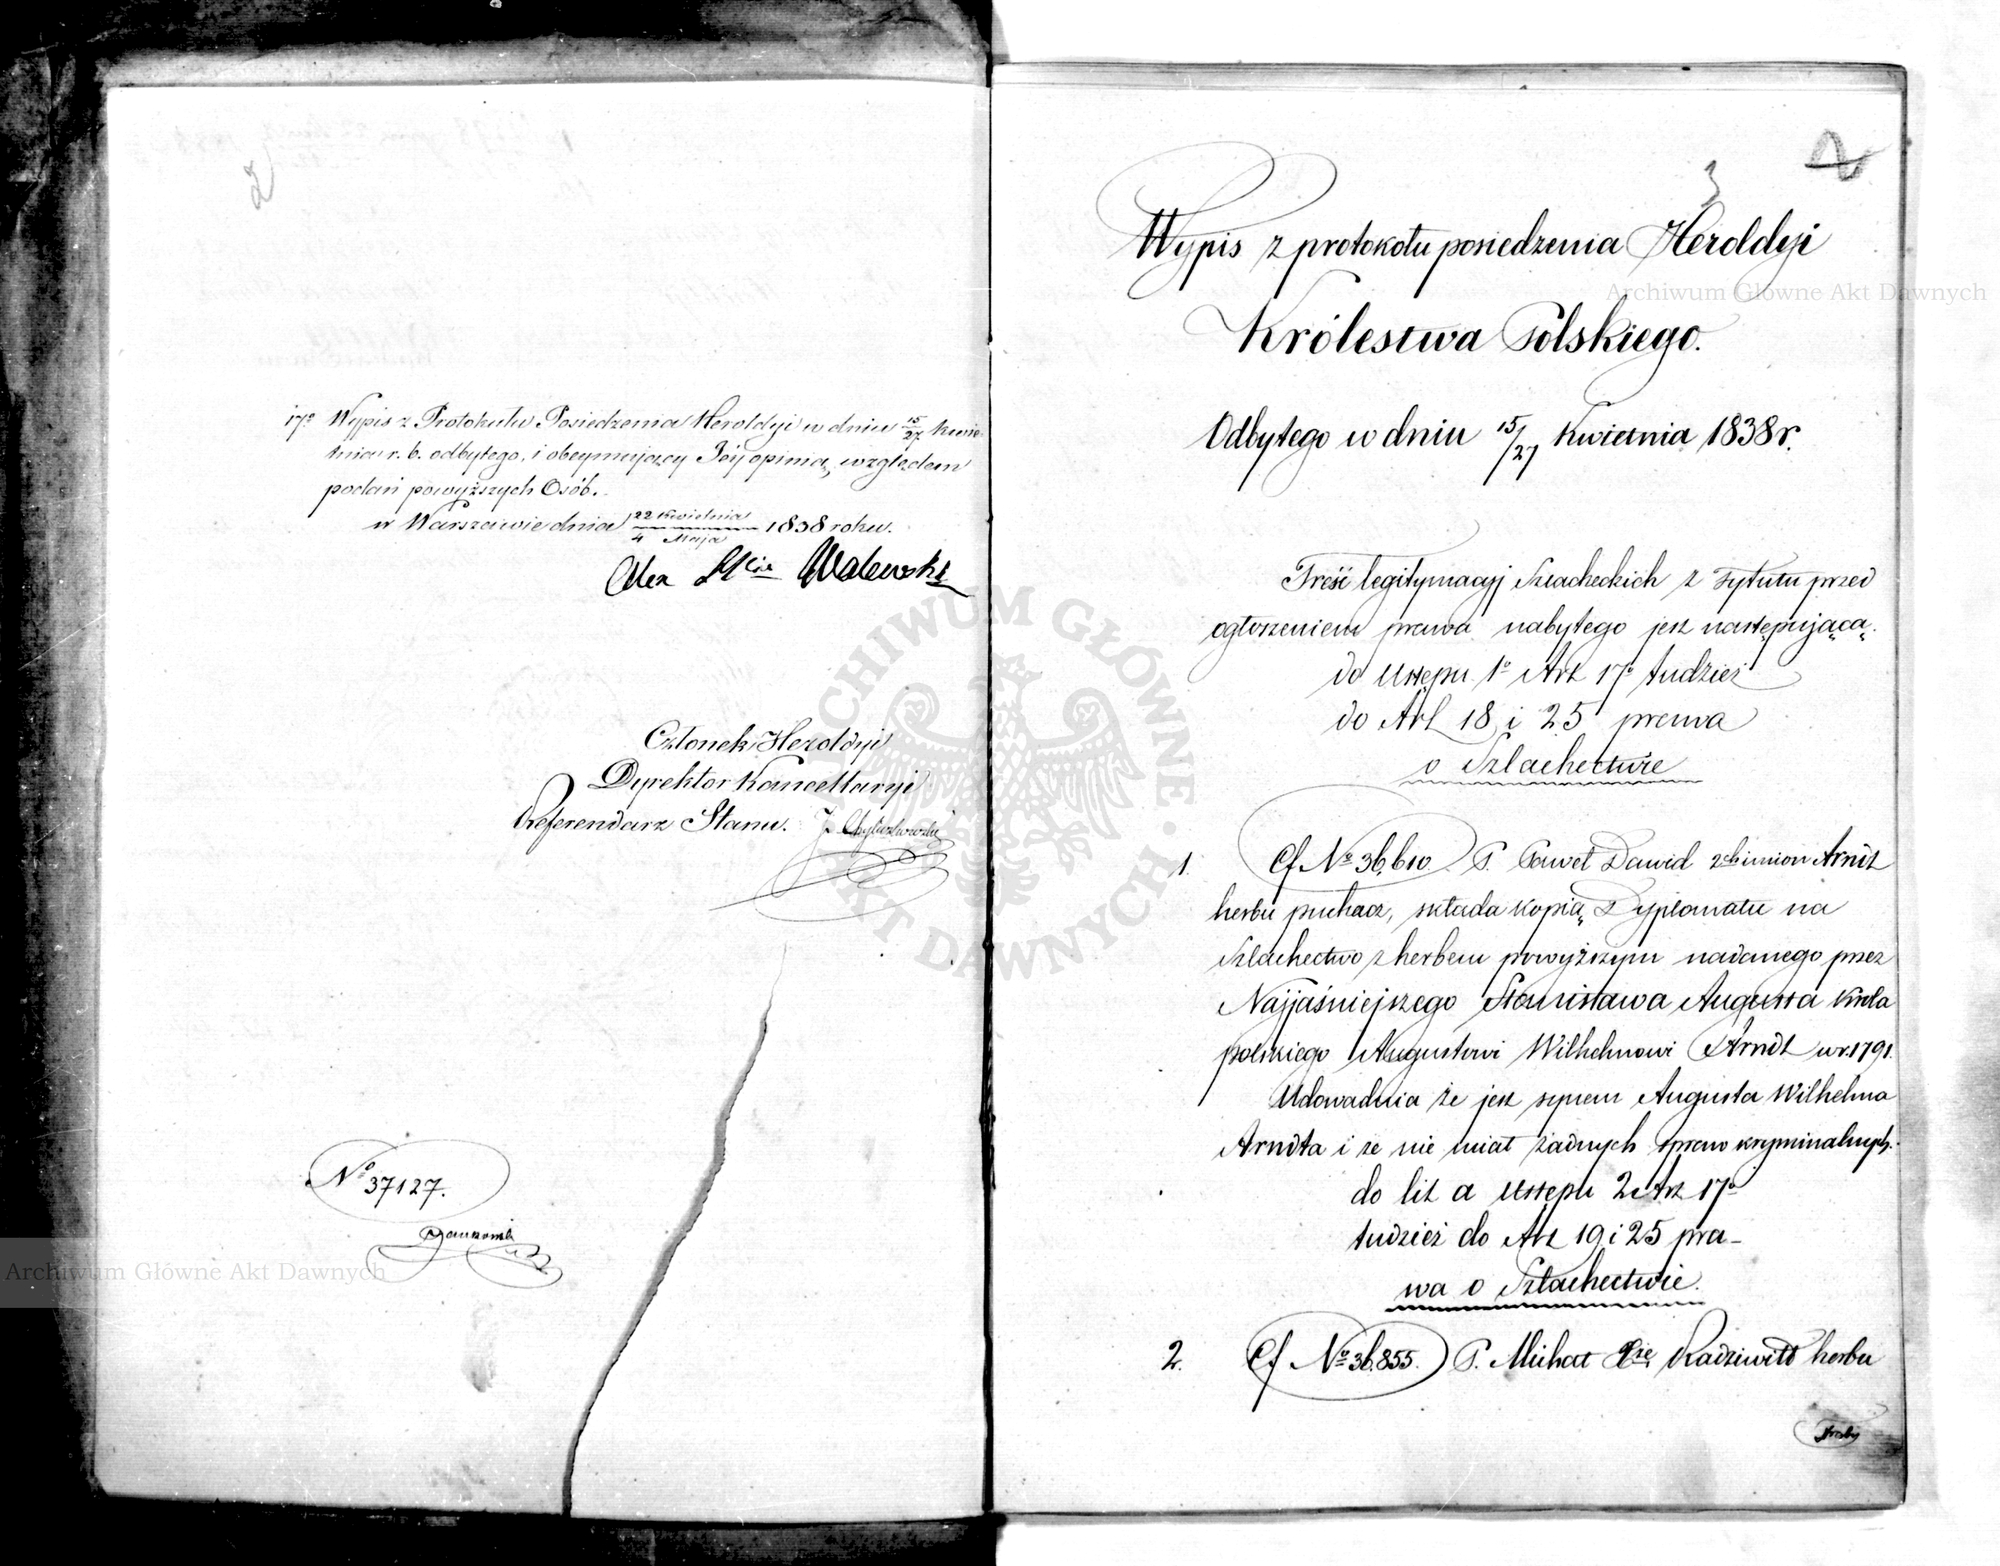 2
17o Wypis z Protokułu Posiedzenia Heroldyi w dniu 15/27 Kwie-
tnia r. b. odbytego, i obeymujący Jéy opinią, względem
podań powyższych Osób.
w Warszawie dnia 22 Kwietnia / 4 Maja 1838 roku.
Alex Walewski
Członek Heroldyi
Dyrektor Kancellaryi
Referendarz Stanu. J.
No 37127.
3
2
Wypis z protokołu posiedzenia Heroldyi
Królestwa Polskiego.
Odbytego w dniu 15/27 Kwietnia 1838 r.
Treść legitymacyj Szlacheckich z tytułu przed
ogłoszeniem prawa nabytego jest następująca.
do Ustępu 1o Art 17o tudzież
do Art 18 i 25 prawa
o Szlachectwie
1. Cf No 36,610. P. Paweł Dawid 2ch imion Arndt
herbu puhacz, składa kopią Dyplomatu na
Szlachectwo z herbem powyższym nadanego przez
Najjaśniejszego Stanisława Augusta Króla
polskiego Augustowi Wilhelmowi Arndt w r. 1791.
Udowadnia że jest synem Augusta Wilhelma
Arndta i że nie miał żadnych spraw kryminalnych.
do lit a Ustępu 2 Art 17o
tudzież do Art 19 i 25 pra-
wa o Szlachectwie.
2. Cf No 36,855. P. Michał Xżę Radziwiłł herbu
Trąby
Archiwum Główne Akt Dawnych
Archiwum Główne Akt Dawnych
ARCHIWUM GŁÓWNE AKT DAWNYCH